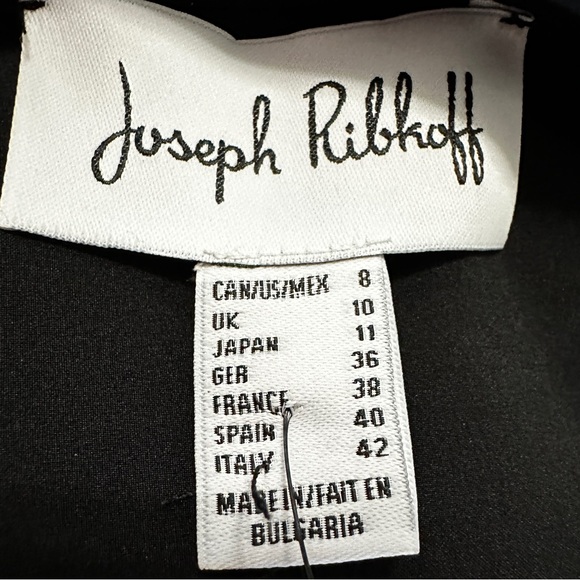 Joseph Ribkoff
CAN/US/MEX 8
UK 10
JAPAN 11
GER 36
FRANCE 38
SPAIN 40
ITALY 42
MADE IN/FAIT EN
BULGARIA